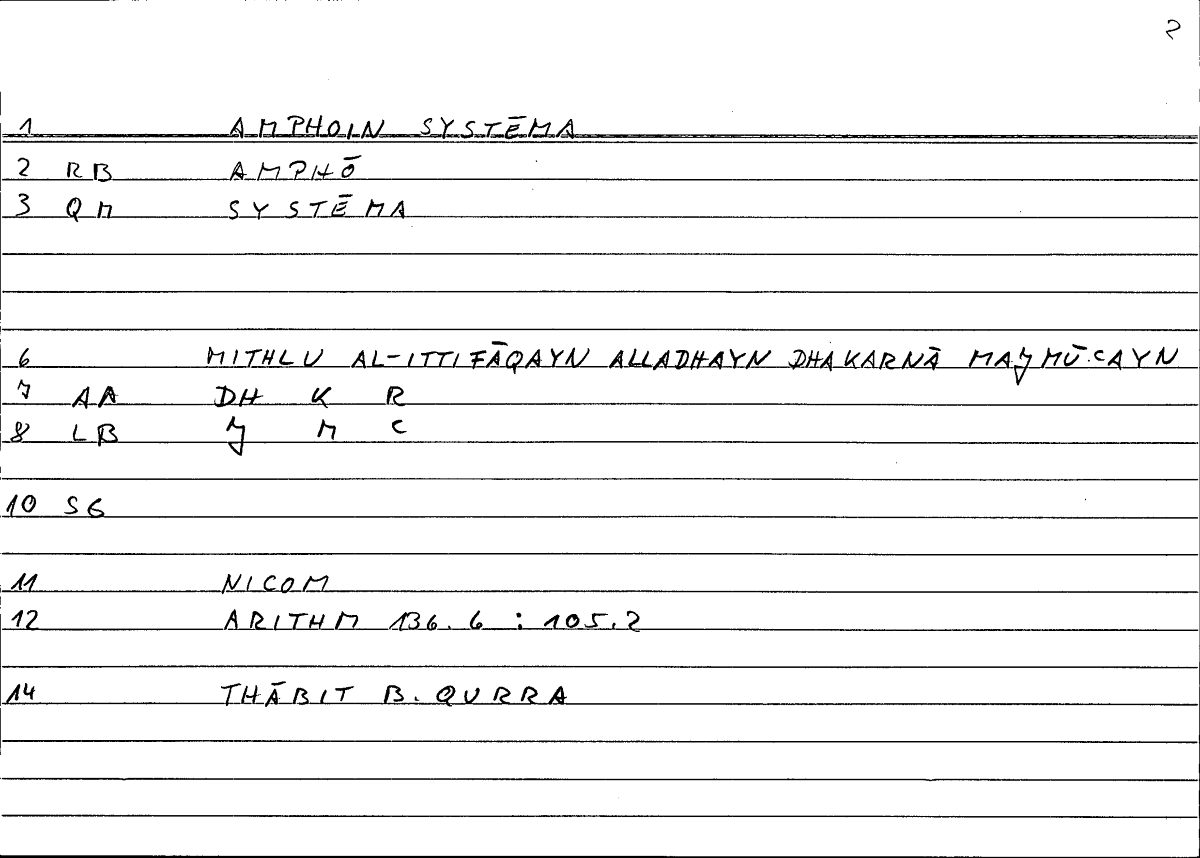 2
1 AMPHOIN SYSTĒMA
2 RB AMPHŌ
3 QM SYSTĒMA
6 MITHLU AL-ITTIFĀQAYN ALLADHAYN DHAKARNĀ MAJMŪCAYN
7 AA DH K R
8 LB J M C
10 SG
11 NICOM
12 ARITHM 136.6 : 105.2
14 THĀBIT B. QURRA